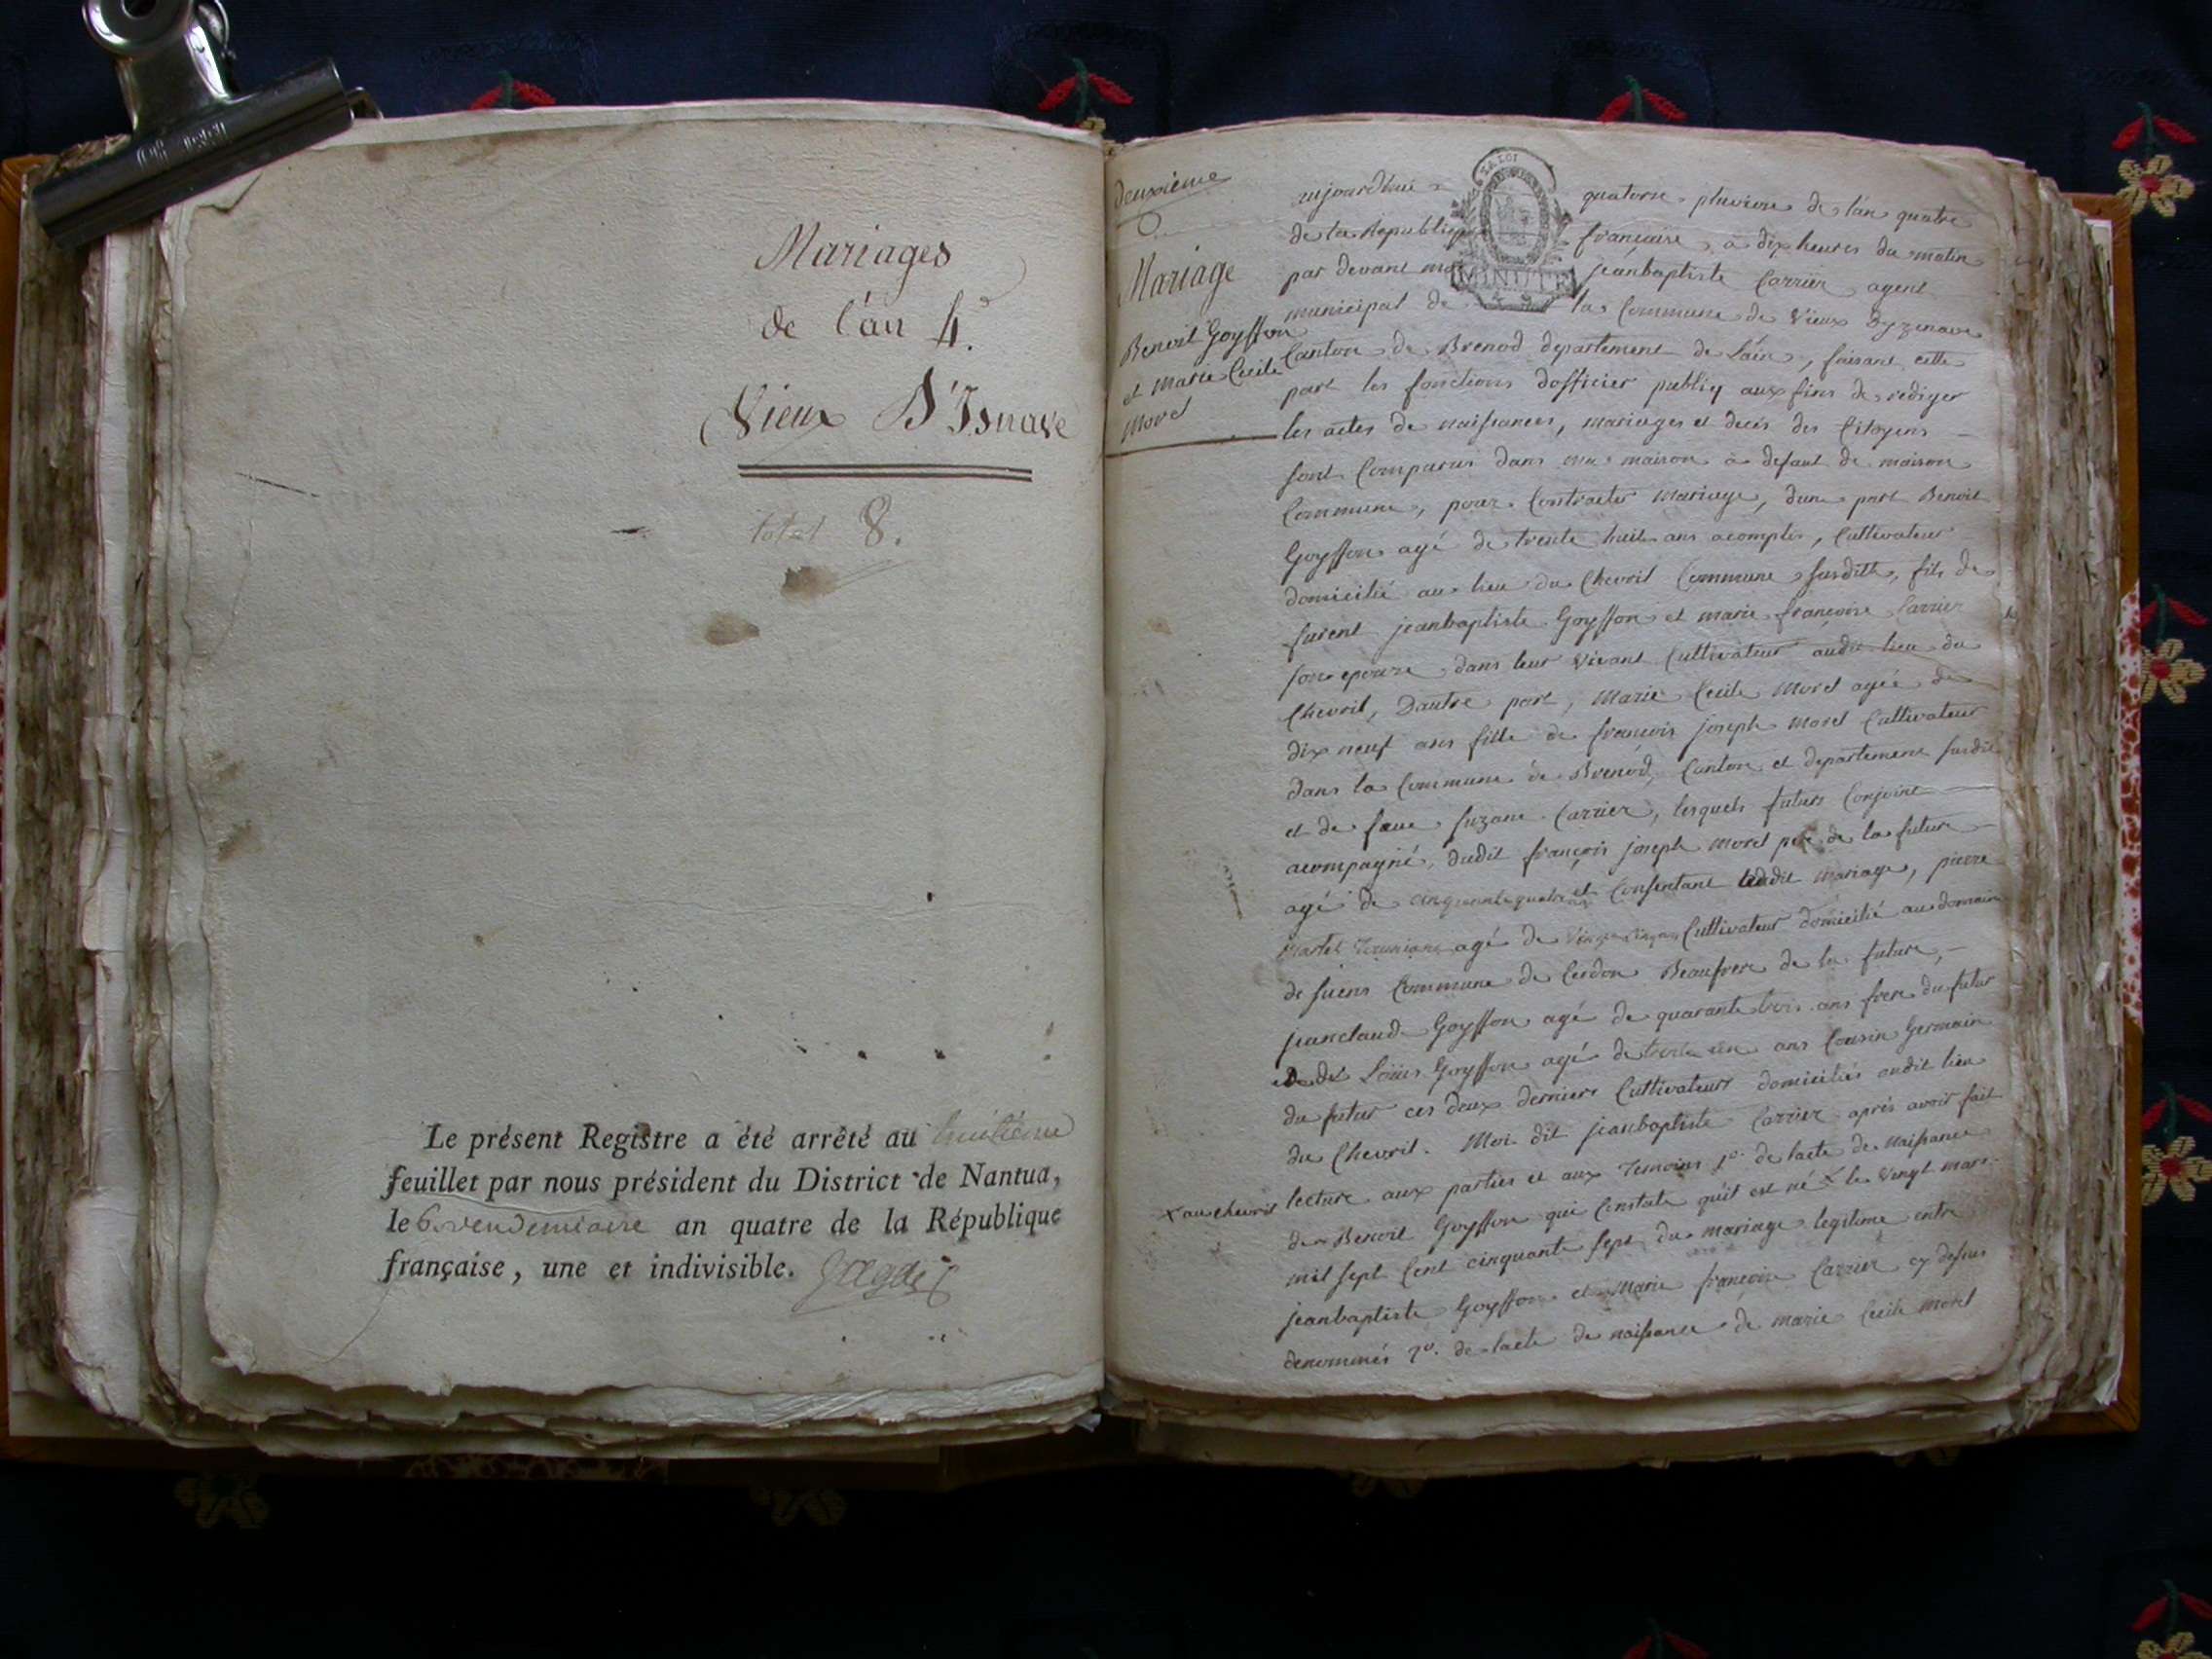 Mariages
de l'an 4.
Vieux D'Isnave
total 8.
Le présent Registre a été arrêté au huitième
feuillet par nous président du District de Nantua,
le 6 vendemiaire an quatre de la République
française, une et indivisible.
deuxième
Mariage
Benoit Goyffon
et Marie Cecile
Morel
LA LOI
MINUTE
aujourdhui quatorse pluviose de lan quatre
de la Republique francaise, a dix heures du matin
par devant moi jeanbaptiste Carrier agent
municipal de la Commune de Vieux Dyzenave
Canton de Brenod departement de Lain, faisant cette
part les fonctions dofficier publiq aux fins de rediger
les actes de naissances, mariages et decés des Citoyens
sont Comparus dans ma maison a defaut de maison
Commune, pour Contracter Mariage, dune part Benoit
Goyffon agé de trente huit ans acomplis, Cultivateur
domicilié au lieu du Chevril Commune susditte, fils de
furent jeanbaptiste Goyffon et marie francoise Carrier
son epouze dans leur vivant Cultivateur audit lieu du
Chevril, Dautre part, Marie Cecile Morel agée de
dix neuf ans fille de francois joseph Morel Cultivateur
dans la Commune de Brenod, Canton et departement susdit
et de feue Suzane Carrier, lesquels futurs Conjoint
acompagné, dudit françois joseph Morel pere de la future
agé de cinquante quatre ans et Consentant audit mariage, pierre
Martel agé de Cultivateur domicilié au domaine
de suens Commune de Cerdon Beaufrere de la future,
jeanclaud Goyffon agé de quarante trois ans frere du futur
et de Loüis Goyffon agé de trente un ans Cousin Germain
du futur ces deux derniers Cultivateurs domiciliés audit lieu
du Chevril. Moi dit jeanbaptiste Carrier aprés avoir fait
x au chevril lecture aux parties et aux Temoins 1o. de lacte de Naissance
de Benoit Goyffon qui Constate quil est né x le vingt mars
mil sept Cent cinquante sept du mariage legitime entre
jeanbaptiste Goyffon et Marie francoise Carrier cy dessus
denommés 2o. de lacte de naissance de marie Cecile Morel